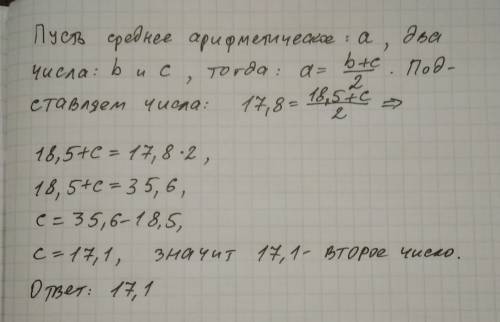 Пусть среднее арифметическое: a, два
числа: b и c, тогда: a = (b+c)/2. Под-
ставляем числа: 17,8 = (18,5+c)/2 ⇒
18,5+c = 17,8·2,
18,5+c = 35,6,
c = 35,6-18,5,
c = 17,1, значит 17,1- второе число.
Ответ: 17,1